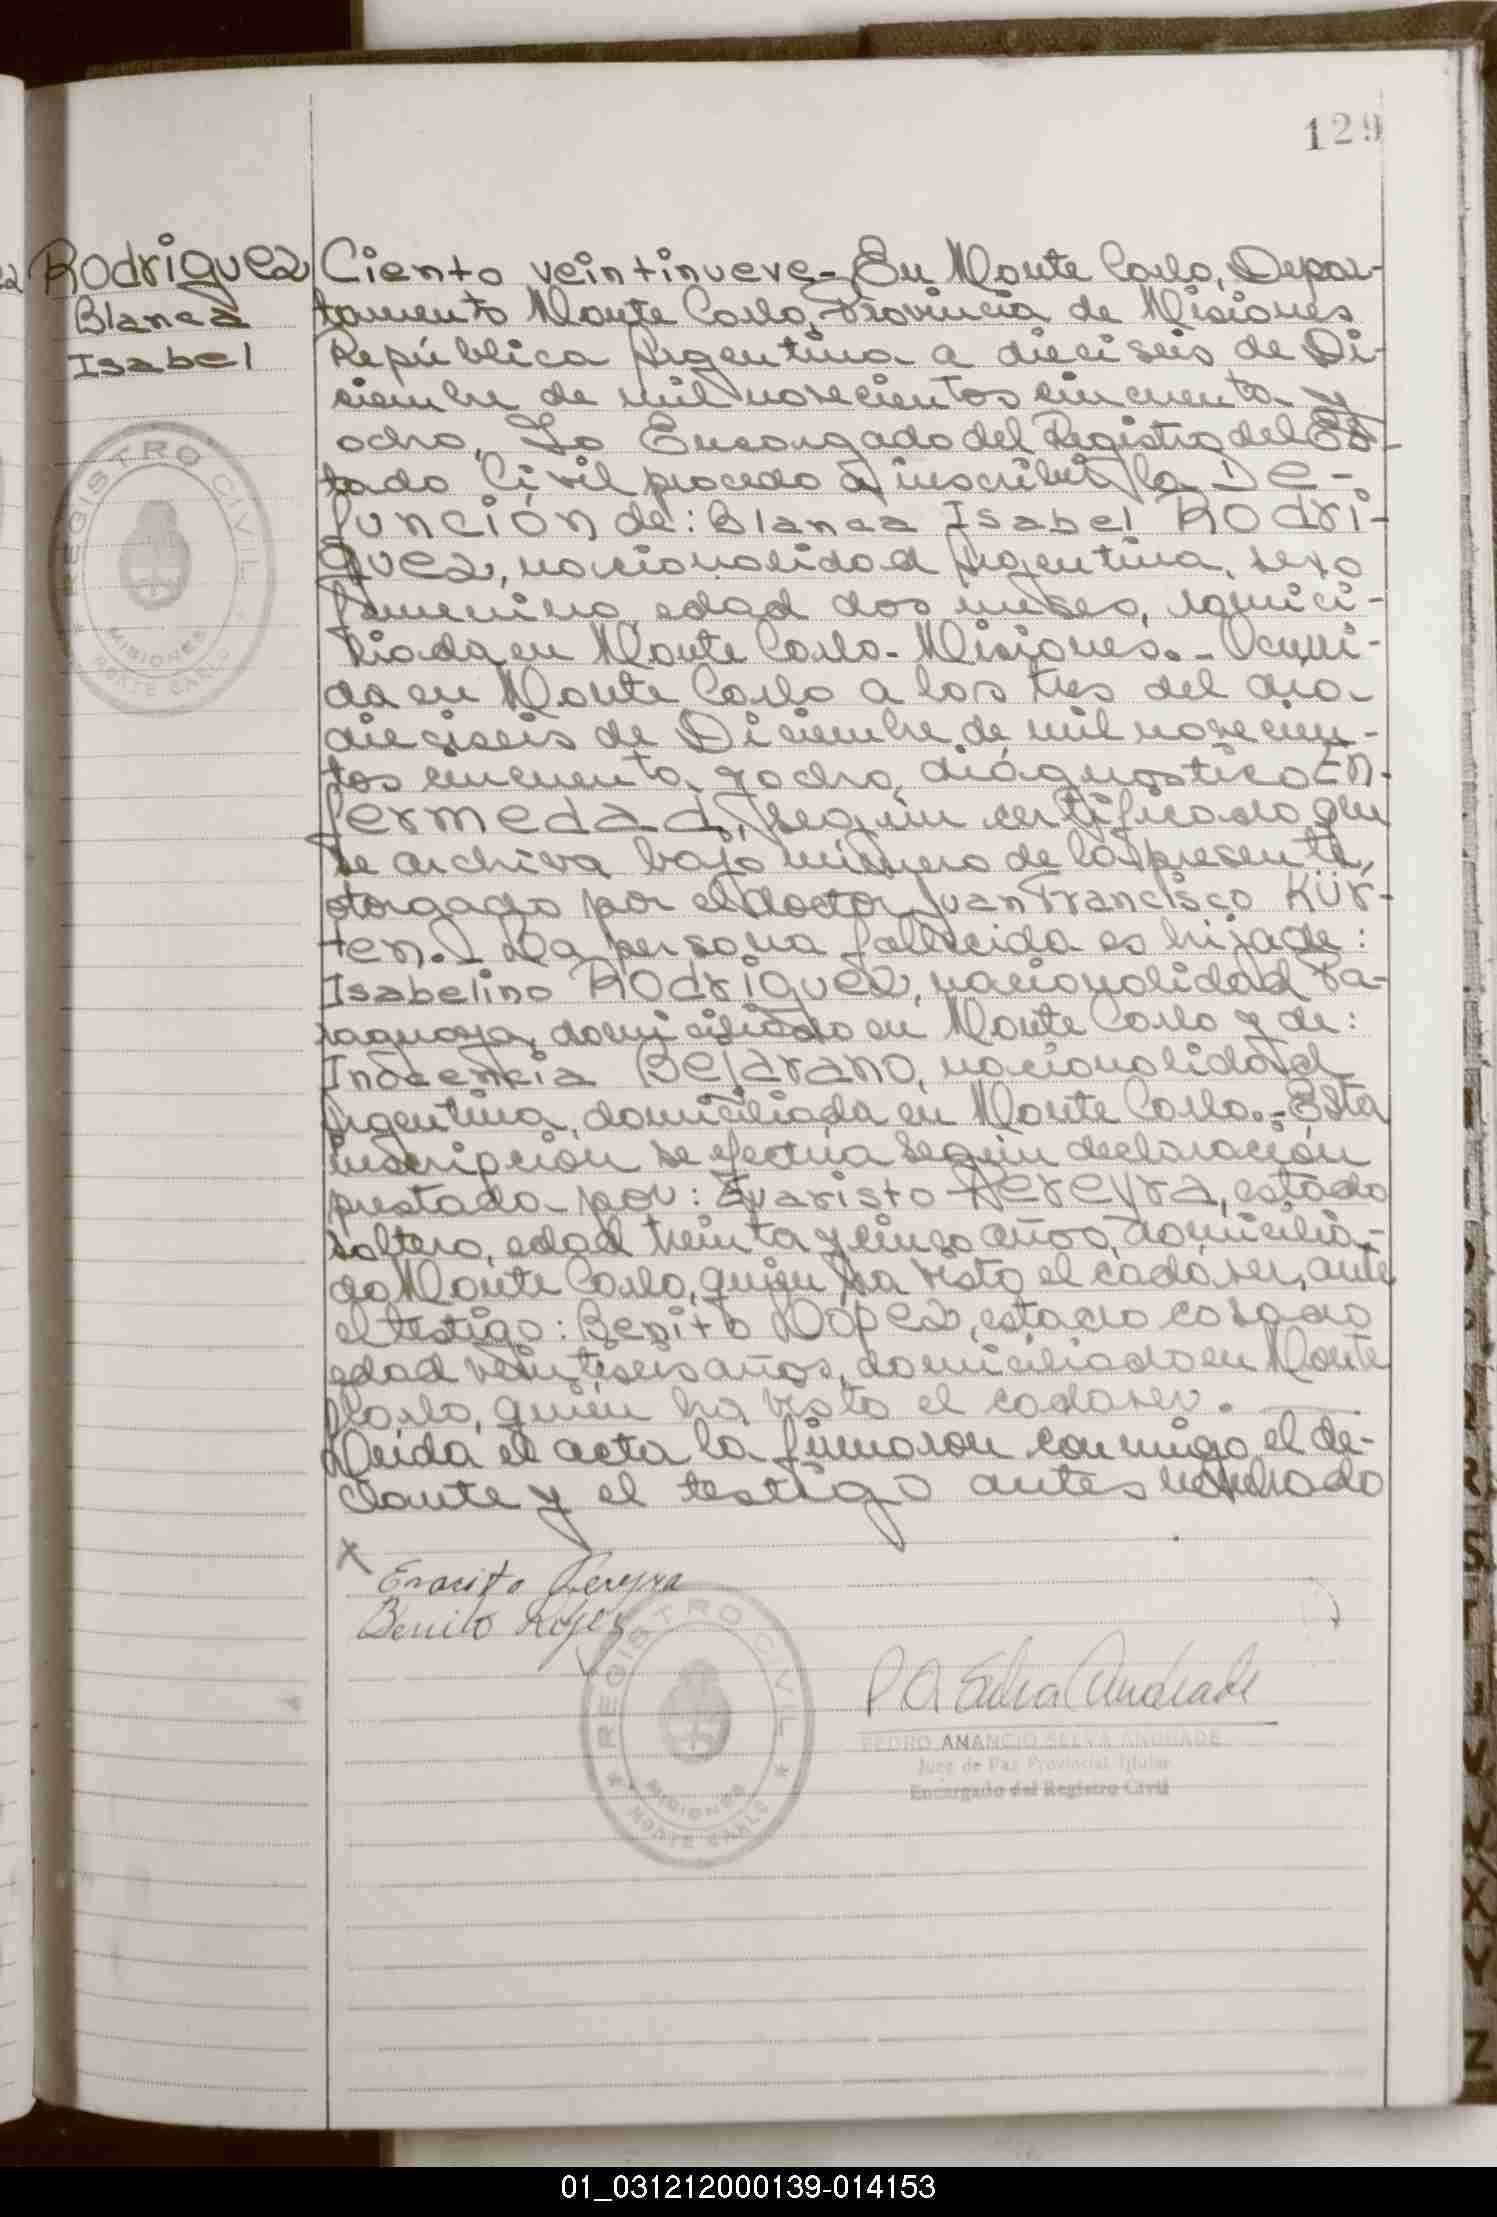 129
Rodriguez
Blanca
Isabel
Ciento veintinueve - En Monte Carlo, Depar-
tamento Monte Carlo, Provincia de Misiones
República Argentina a dieciseis de Di-
ciembre de mil novecientos cincuenta y
ocho, Yo Encargado del Registro del Es-
tado Civil procedo a inscribir la De-
función de: Blanca Isabel Rodri-
guez, nacionalidad Argentina, sexo
femenino, edad dos meses, domici-
liada en Monte Carlo - Misiones. - Ocurri-
da en Monte Carlo a los tres del dia
dieciseis de Diciembre de mil novecien-
tos cincuenta y ocho, diágnostico En-
fermedad, según certificado que
se archiva bajo número de la presente,
otorgado por el doctor Juan Francisco Kür-
ten. - La persona fallecida es hija de:
Isabelino Rodriguez, nacionalidad Pa-
raguaya, domiciliado en Monte Carlo y de:
Inocencia Bejarano, nacionalidad
Argentina, domiciliada en Monte Carlo. - Esta
inscripción se efectúa según declaración
prestada por: Evaristo Pereyra, estado
soltero, edad treinta y cinco años, domicilia-
do Monte Carlo, quien ha visto el cadáver, ante
el testigo: Benito Lopez, estado casado
edad veintiseis años, domiciliado en Monte
Carlo, quien ha visto el cadaver.
Leida el acta la firmaron conmigo el de-
clante y el testigo antes nombrado
x
Evaristo Pereyra
Benito Lopez
P A Selva Andrade
PEDRO AMANCIO SELVA ANDRADE
Juez de Paz Provincial Titular
Encargado del Registro Civil
REGISTRO CIVIL
MISIONES
MONTE CARLO
REGISTRO CIVIL
MISIONES
MONTE CARLO
R
S
T
U
V
W
X
Y
Z
01_031212000139-014153